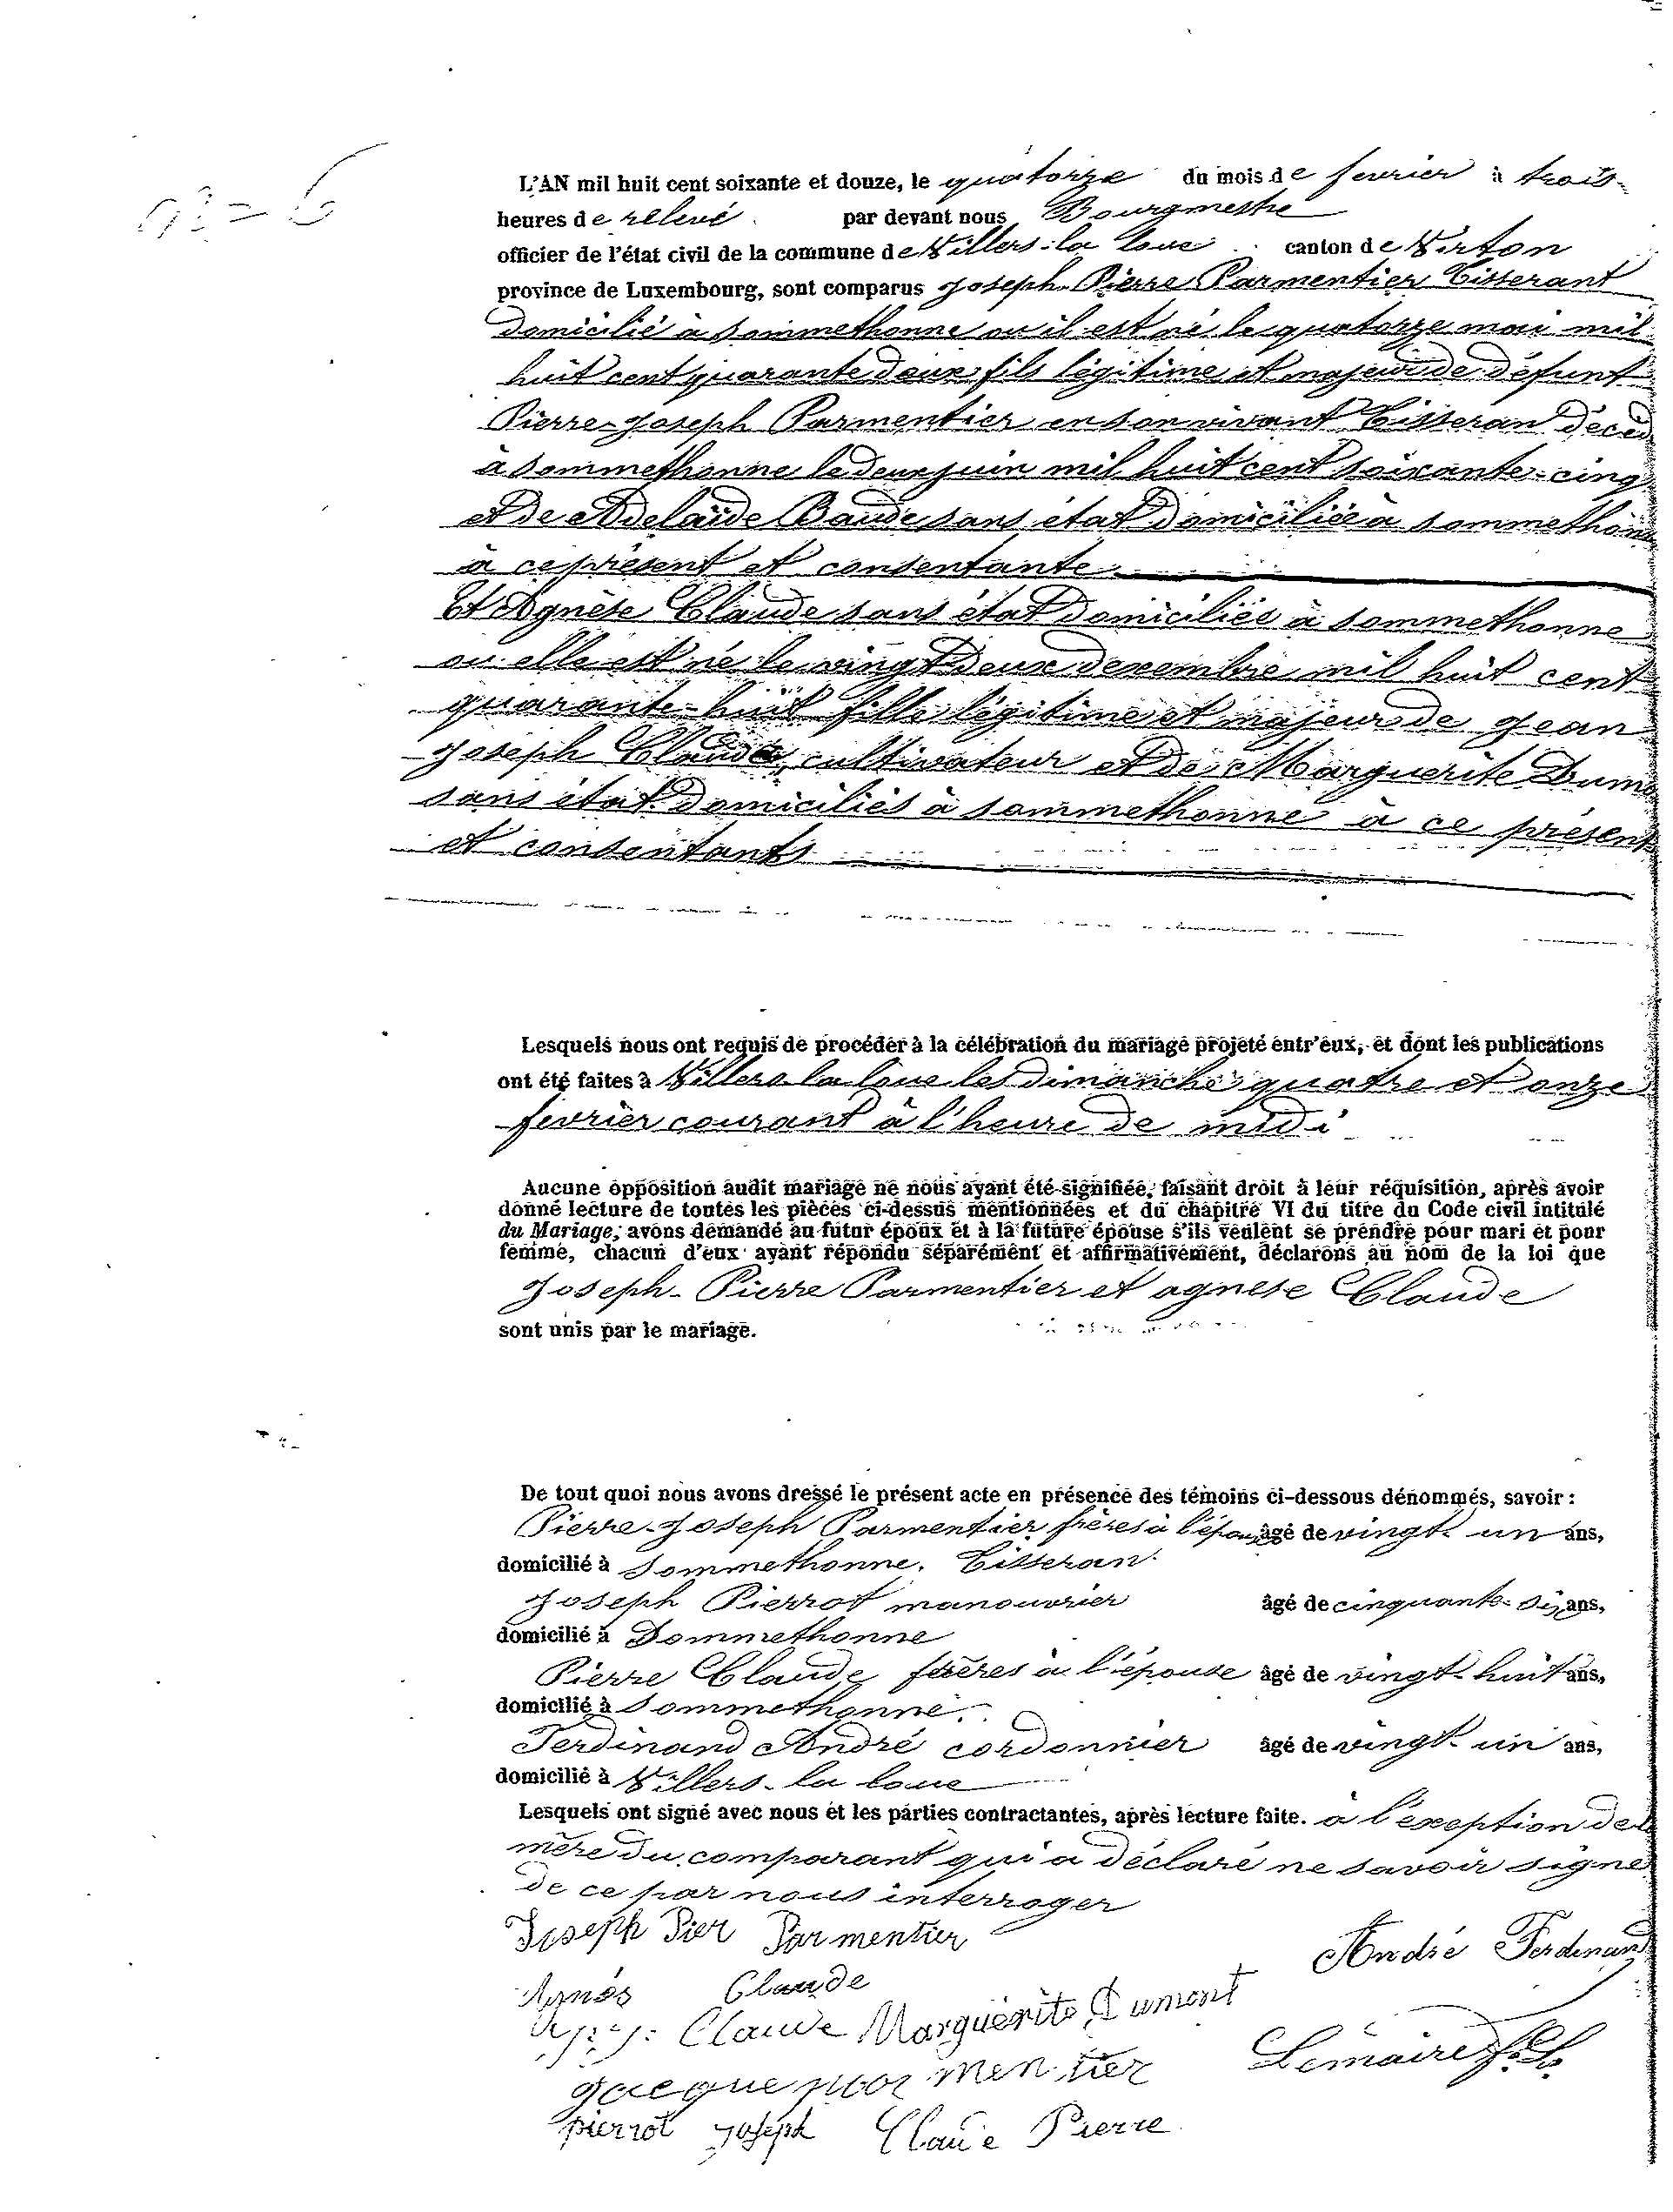 n° = 6
L'AN mil huit cent soixante et douze, le quatorze du mois de fevrier à trois
heures de relevé par devant nous Bourgmestre
officier de l'état civil de la commune de Villers-la loue canton de Virton
province de Luxembourg, sont comparus Joseph-Pierre Parmentier Tisserant
domicilié à Sommethonne ou il est né le quatorze mai mil
huit cent quarante deux fils légitime et majeur de défunt
Pierre-Joseph Parmentier en son vivant Tisseran décéd
à Sommethonne le deux juin mil huit cent soixante-cinq
et de Adelaïde Baude sans état domiciliée à Sommethonn
à ce présent et consentante
Et Agnèse Claude sans état domiciliée à Sommethonne
ou elle est né le vingt deux dexembre mil huit cent
quarante-huit fille légitime et majeur de Jean
Joseph Claude, cultivateur et de Marguerite Dumo
sans état domiciliés à Sommethonne à ce présent
et consentants
Lesquels nous ont requis de procéder à la célébration du mariage projeté entr'eux, et dont les publications
ont été faites à Villers la loue les dimanche quatre et onze
fevrier courant à l'heure de midi
Aucune opposition audit mariage ne nous ayant été signifiée, faisant droit à leur réquisition, après avoir
donné lecture de toutes les pièces ci-dessus mentionnées et du chapitre VI du titre du Code civil intitulé
du Mariage, avons demandé au futur époux et à la future épouse s'ils veulent se prendre pour mari et pour
femme, chacun d'eux ayant répondu séparément et affirmativement, déclarons au nom de la loi que
Joseph-Pierre Parmentier et agnese Claude
sont unis par le mariage.
De tout quoi nous avons dressé le présent acte en présence des témoins ci-dessous dénommés, savoir :
Pierre-Joseph Parmentier frères à l'époux âgé de vingt-un ans,
domicilié à Sommethonne. Tisseran
Joseph Pierrot manouvrier âgé de cinquante-six ans,
domicilié à Sommethonne
Pierre Claude frères à l'épouse âgé de vingt-huit ans,
domicilié à Sommethonne.
Ferdinand André cordonnier âgé de vingt-un ans,
domicilié à Villers-la loue
Lesquels ont signé avec nous et les parties contractantes, après lecture faite. à l'exeption de la
mère du comparant qui a déclaré ne savoir signe
de ce par nous interroger
Joseph Pier Parmentier
André Ferdinand
Agnés Claude
Claude Marguérite Dumont
Lemaire
Jacque parmentier
pierrot Joseph Claude Pierre